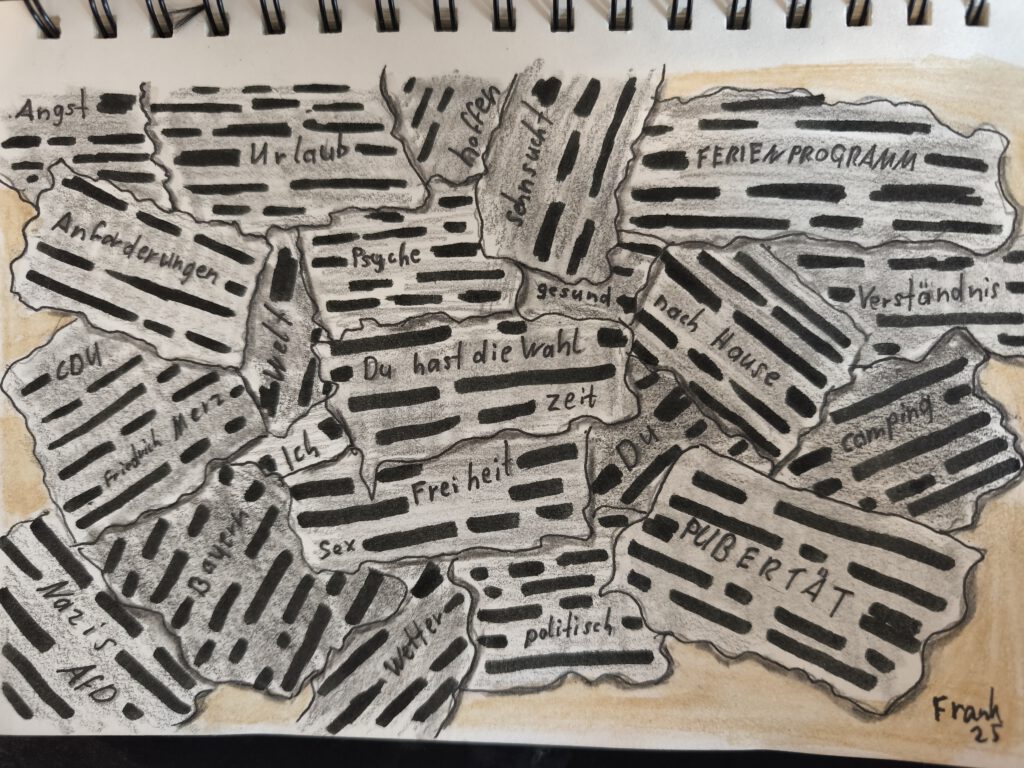 Angst
Urlaub
hoffen
Sehnsucht
FERIENPROGRAMM
Anforderungen
Psyche
gesund
Verständnis
Welt
nach Hause
CDU
Friedrich Merz
Du hast die Wahl
zeit
camping
Ich
Du
Freiheit
Sex
Bayern
PUBERTÄT
Nazis
AfD
Wetter
politisch
Frank
25